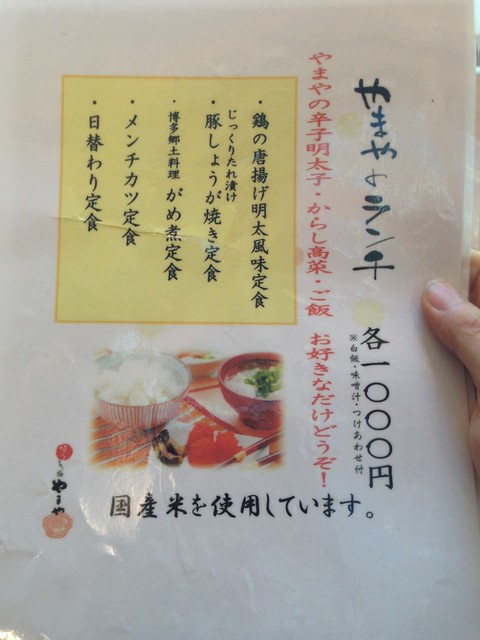 やまやのランチ
各一〇〇〇円
※白飯・味噌汁・つけあわせ付
やまやの辛子明太子・からし高菜・ご飯 お好きなだけどうぞ！
・鶏の唐揚げ明太風味定食
じっくりたれ漬け
・豚しょうが焼き定食
・博多郷土料理 がめ煮定食
・メンチカツ定食
・日替わり定食
国産米を使用しています。
やまや